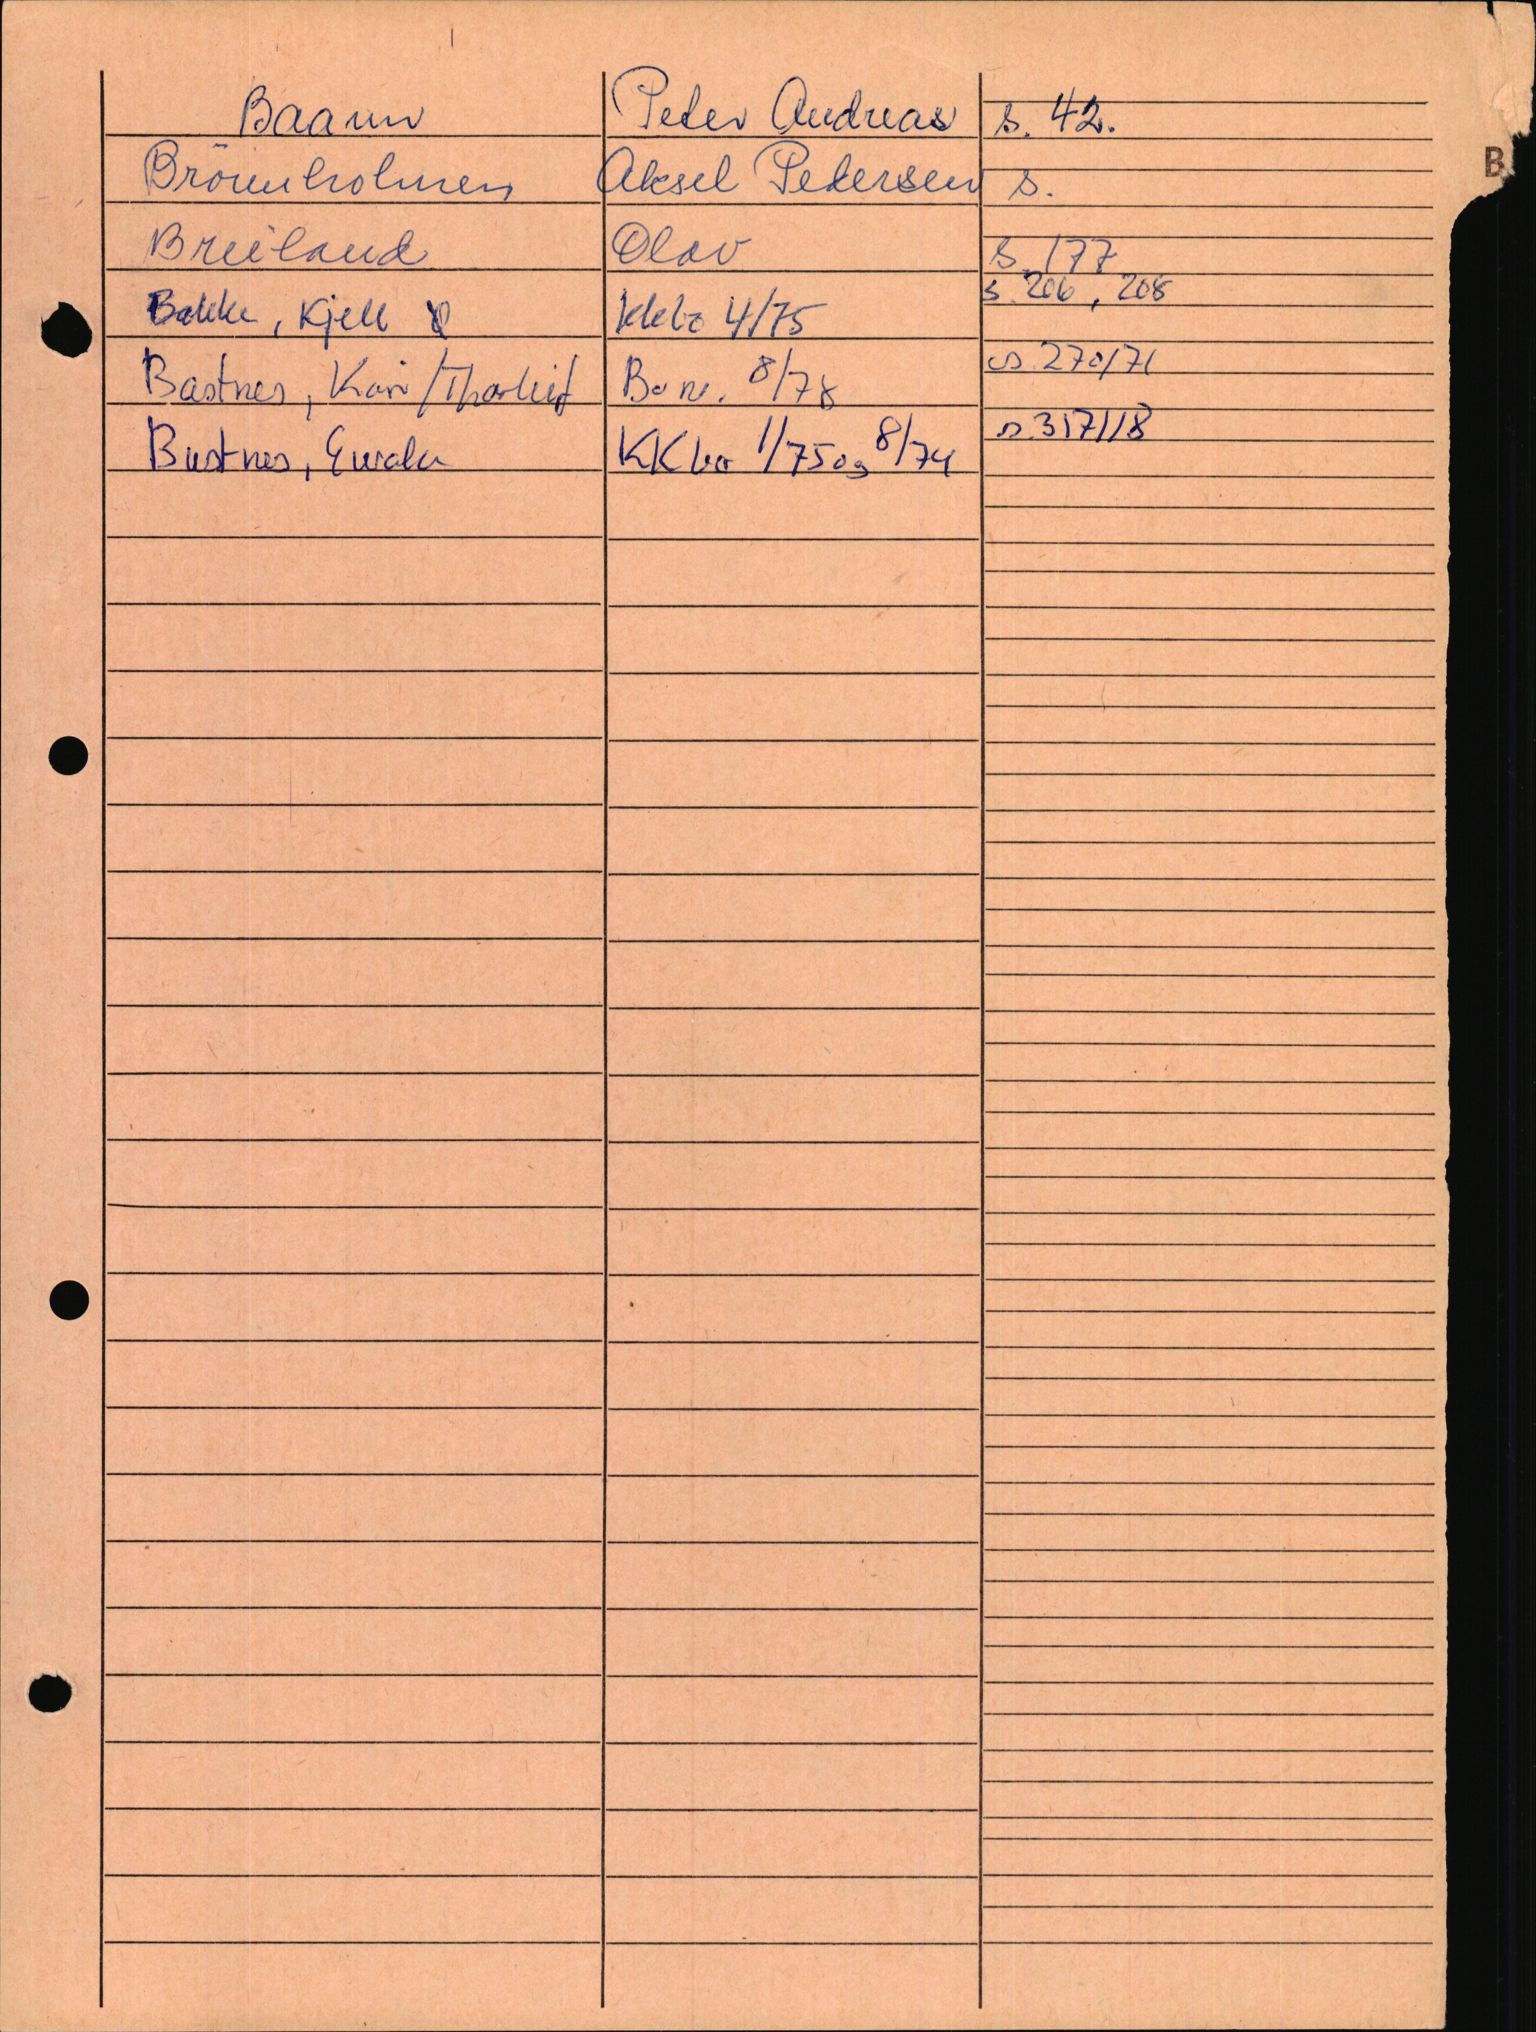 B
Baarn Peter Andreas s. 42.
Brönnholmen Aksel Pedersen s.
Breiland Olav s. 177
Bakke, Kjell kkbo 4/75 s. 206, 208
Bastnes, Kari/Tharleif Bo nr. 8/78 s. 270/71
Bustnes, KKbo 1/75 og 8/74 s. 317/18